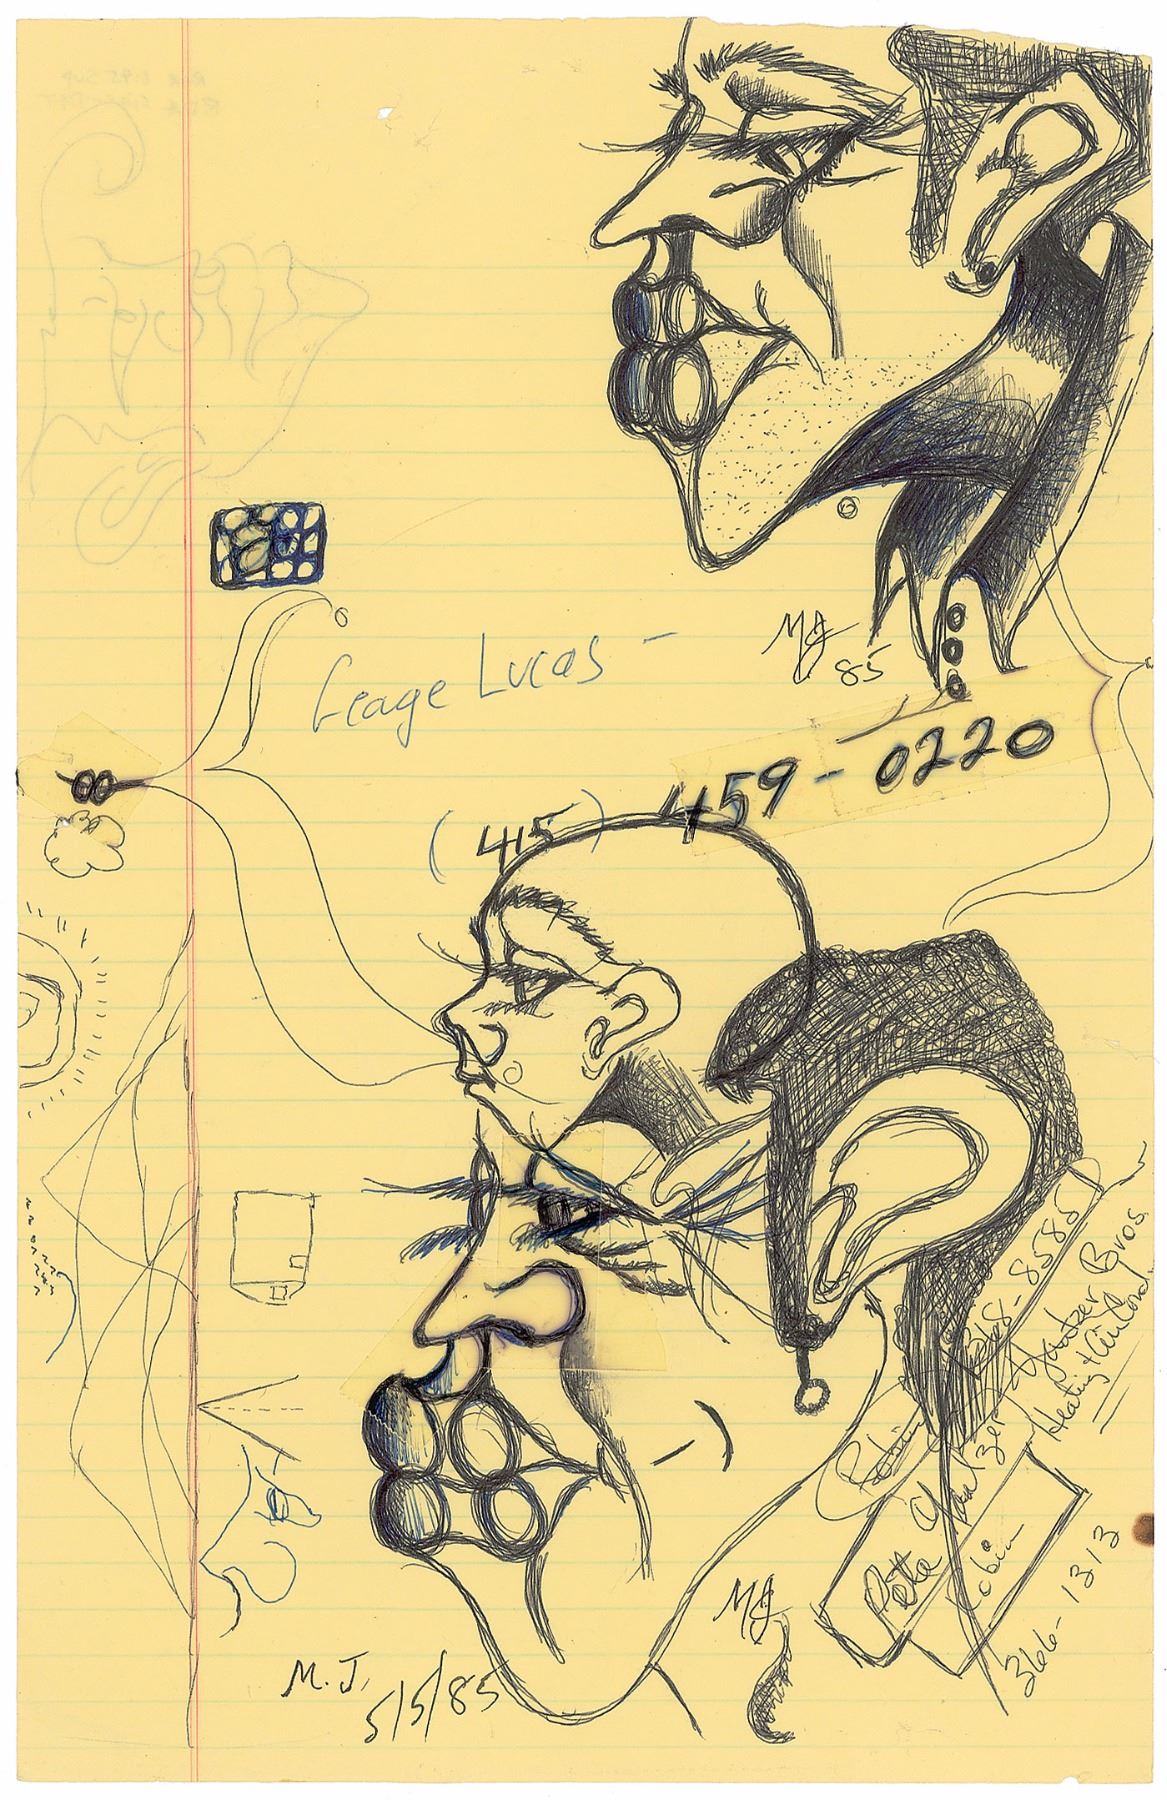 MJ
85
Geage Lucas -
(415) 459-0220
368-8585
Yantzer Bros.
Heating + Air Cond.
Robin
Yantzer
Pette
Robin
366-1313
MJ
M.J.
5/5/85